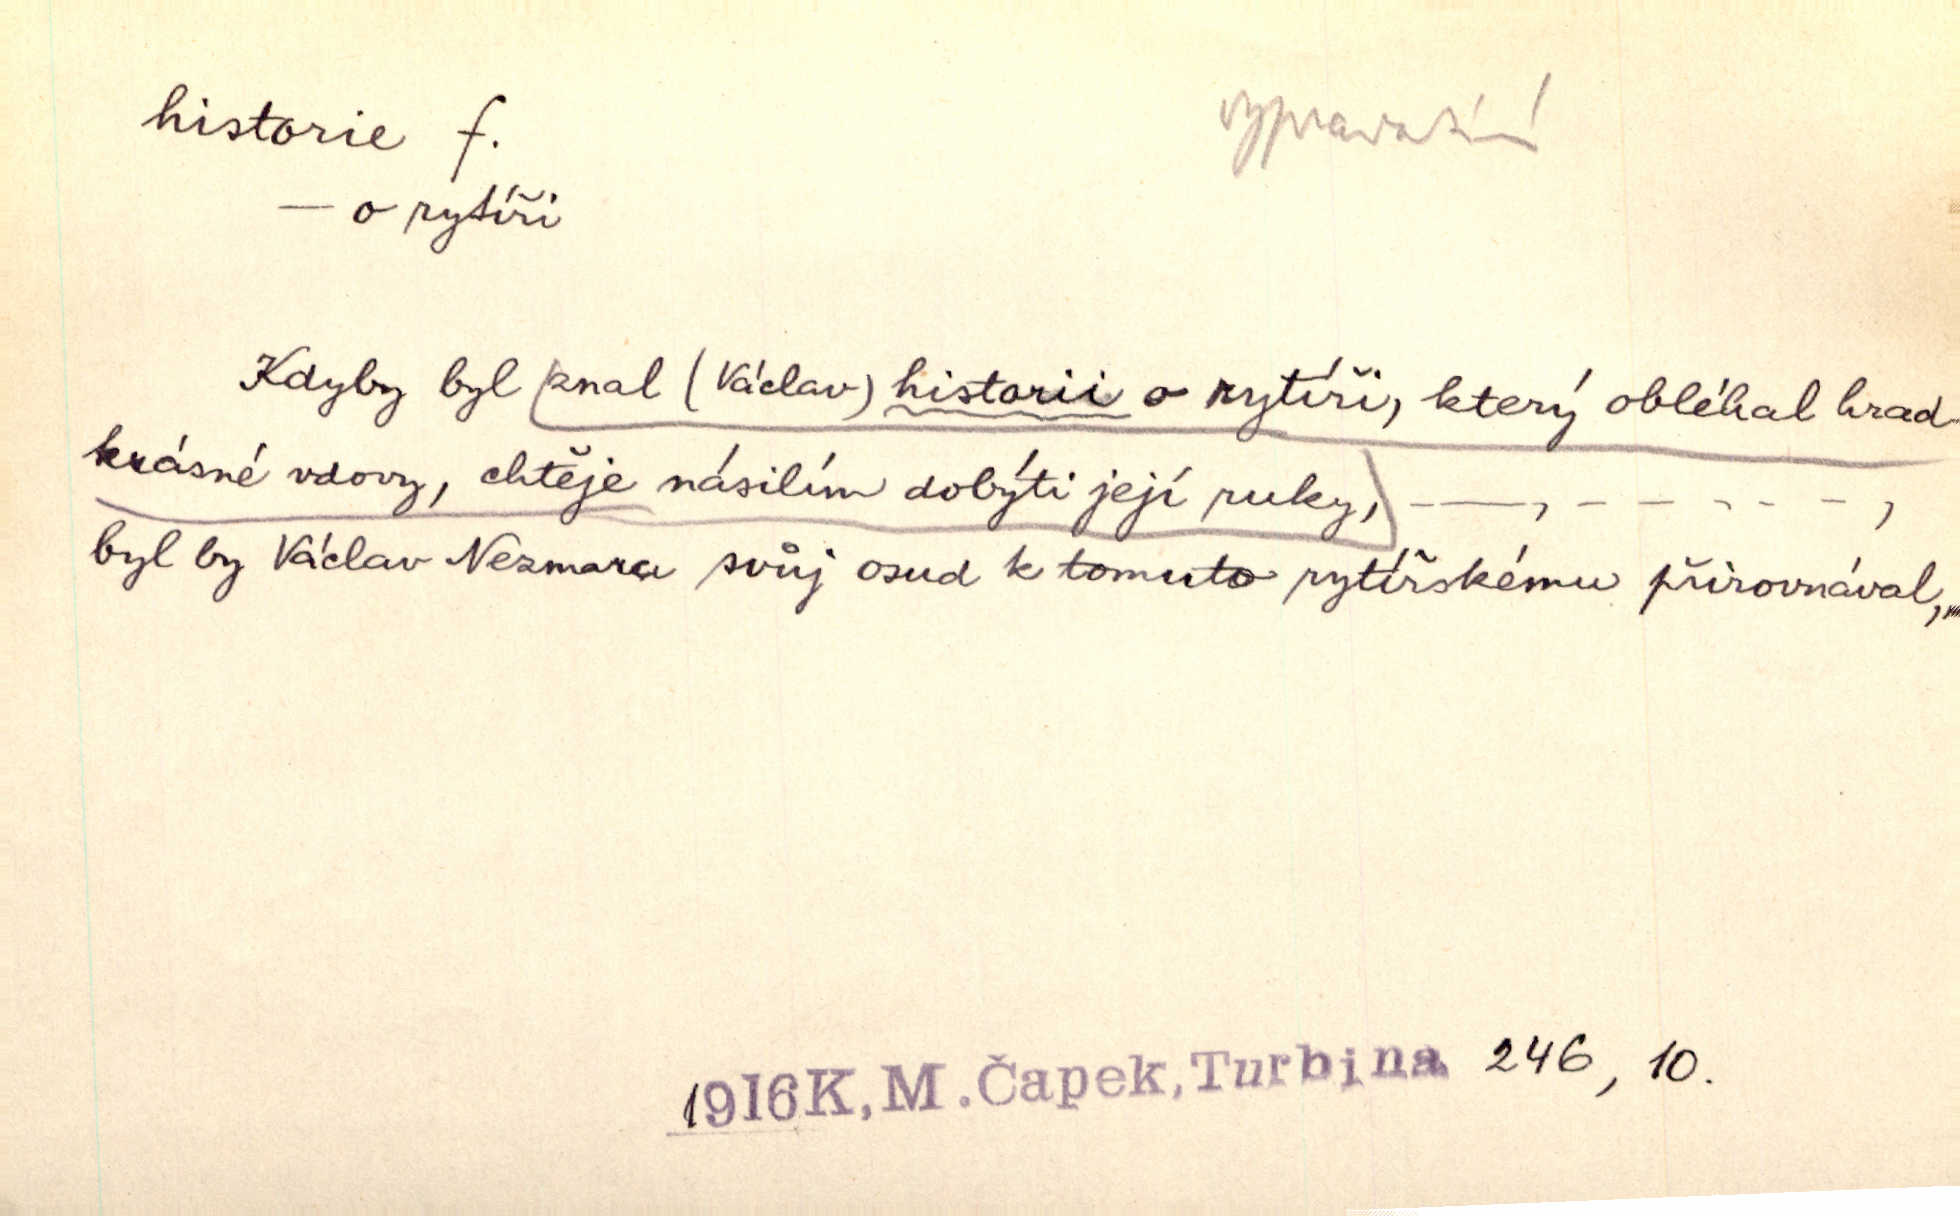 historie f.
vypravování
— o rytíři
Kdyby byl znal (Václav) historii o rytíři, který obléhal hrad
krásné vdovy, chtěje násilím dobýti její ruky, – —, – – – – –,
byl by Václav Nezmara svůj osud k tomuto rytířskému přirovnával,
1916 K, M. Čapek, Turbina 246, 10.